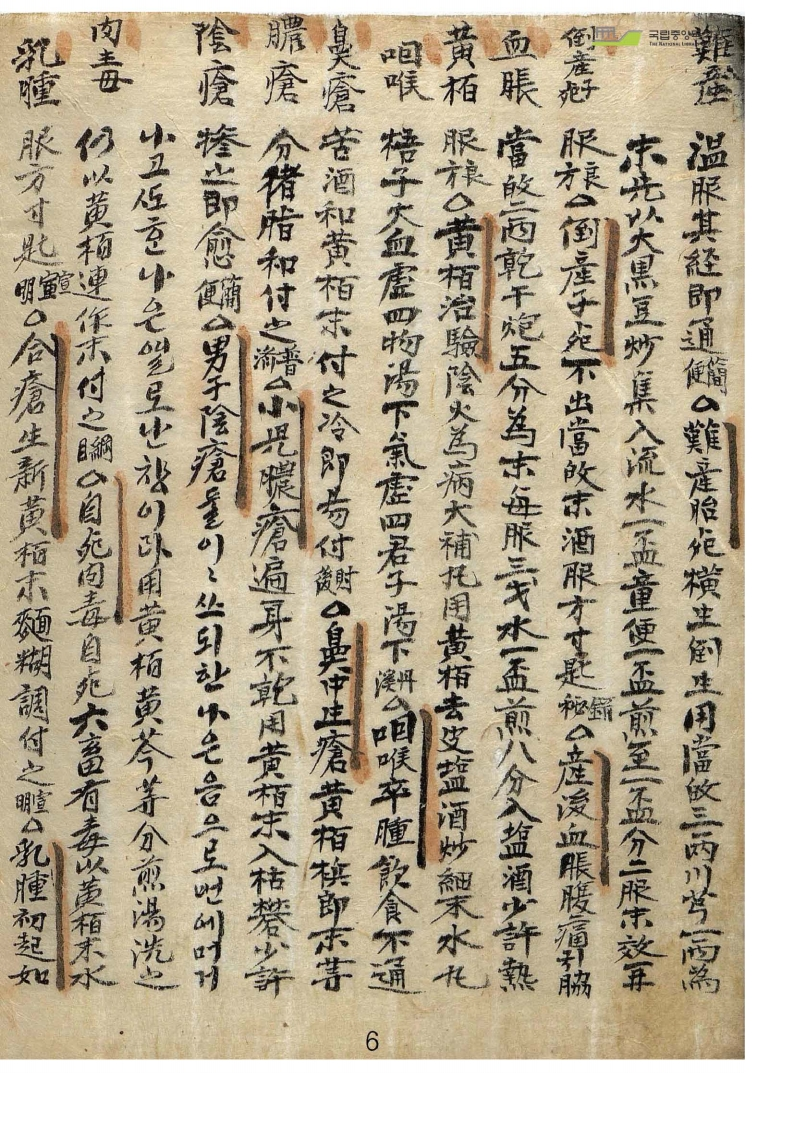 국립중앙
THE NATIONAL LIBRA
難産
溫服其経即通簡便○難産胎死橫生倒生用當故三兩川芎一兩為
末先以大黑豆炒集入流水一盃童便一盃煎至一盃分二服未效再
倒産子死
服方良○倒産子死不出當故末酒服方寸匙錄秘○産後血脹腹痛引脇
血脹
當故二兩乾干炮五分為末每服三戈水一盃煎八分入塩酒少許熱
黃栢
服方良○黃栢治驗陰火為病大補丸用黃栢去皮塩酒炒細末水丸
咽喉
梧子大血虛四物湯下氣虛四君子湯下丹溪○咽喉卒腫飮食不通
鼻瘡
苦酒和黃栢末付之冷即易付肘後○鼻中生瘡黃栢梹郎末等
膿瘡
分猪脂和付之普濟○小児膿瘡遍身不乾用黃栢末入枯礬少許
陰瘡
摻之即愈簡便○男子陰瘡 한 은 음으로
黃栢黃芩等分煎湯洗之
肉毒
仍以黃栢連作末付之綱目○自死肉毒自死六畜有毒以黃栢末水
乳腫
服方寸匙宣明○合瘡生新黃栢末麵糊調付之宣明○乳腫初起如
6